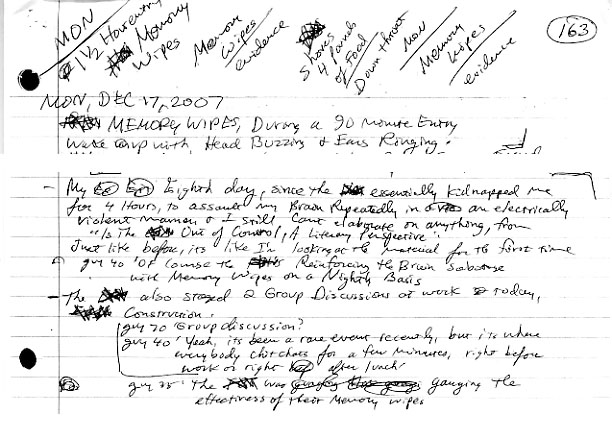 163
MON
1½ Hour entry
Memory
Wipes
Memory
Wipes
evidence
Shoves
4 pounds
of Food
Down throat
MON
Memory
Wipes
evidence
MON, DEC 17, 2007
MEMORY WIPES, During a 90 minute Entry
Wake up with Head Buzzing & Ears Ringing.
- My Eighth day, since the essentially kidnapped me
for 4 Hours, to assault my Brain Repeatedly in an electrically
violent manner, & I still Cant elaborate on anything, from
"Is The Out of Control, A Literary Perspective".
Just like before, its like Im looking at the material for the first time
guy 40 'Of course the Reinforcing the Brain Sabotage
with Memory Wipes on a Nightly Basis
- The also staged 2 Group Discussions at work today,
Construction.
guy 70 'Group discussion?
guy 40 'Yeah, its been a rare event recently, but its where
everybody chitchats for a few minutes, right before
work or right after lunch'
guy 75 'The was gauging the
effectiveness of their Memory wipes